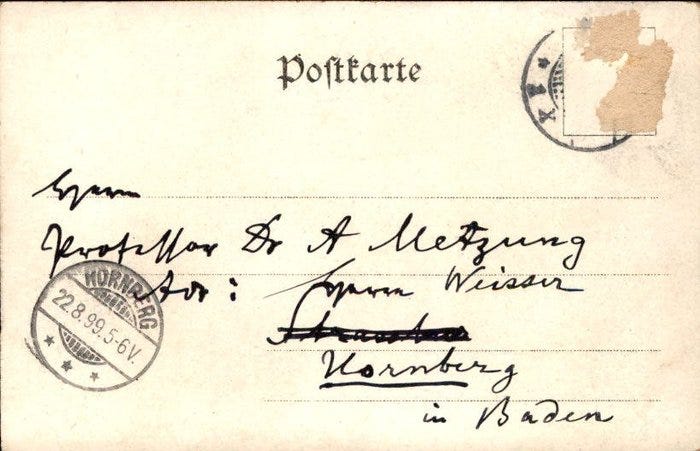 Postkarte
X
Herrn
Professor Dr A Metzung
Adr: Herrn Weisser
Hornberg
in Baden
HORNBERG
22.8.99.5-6V.